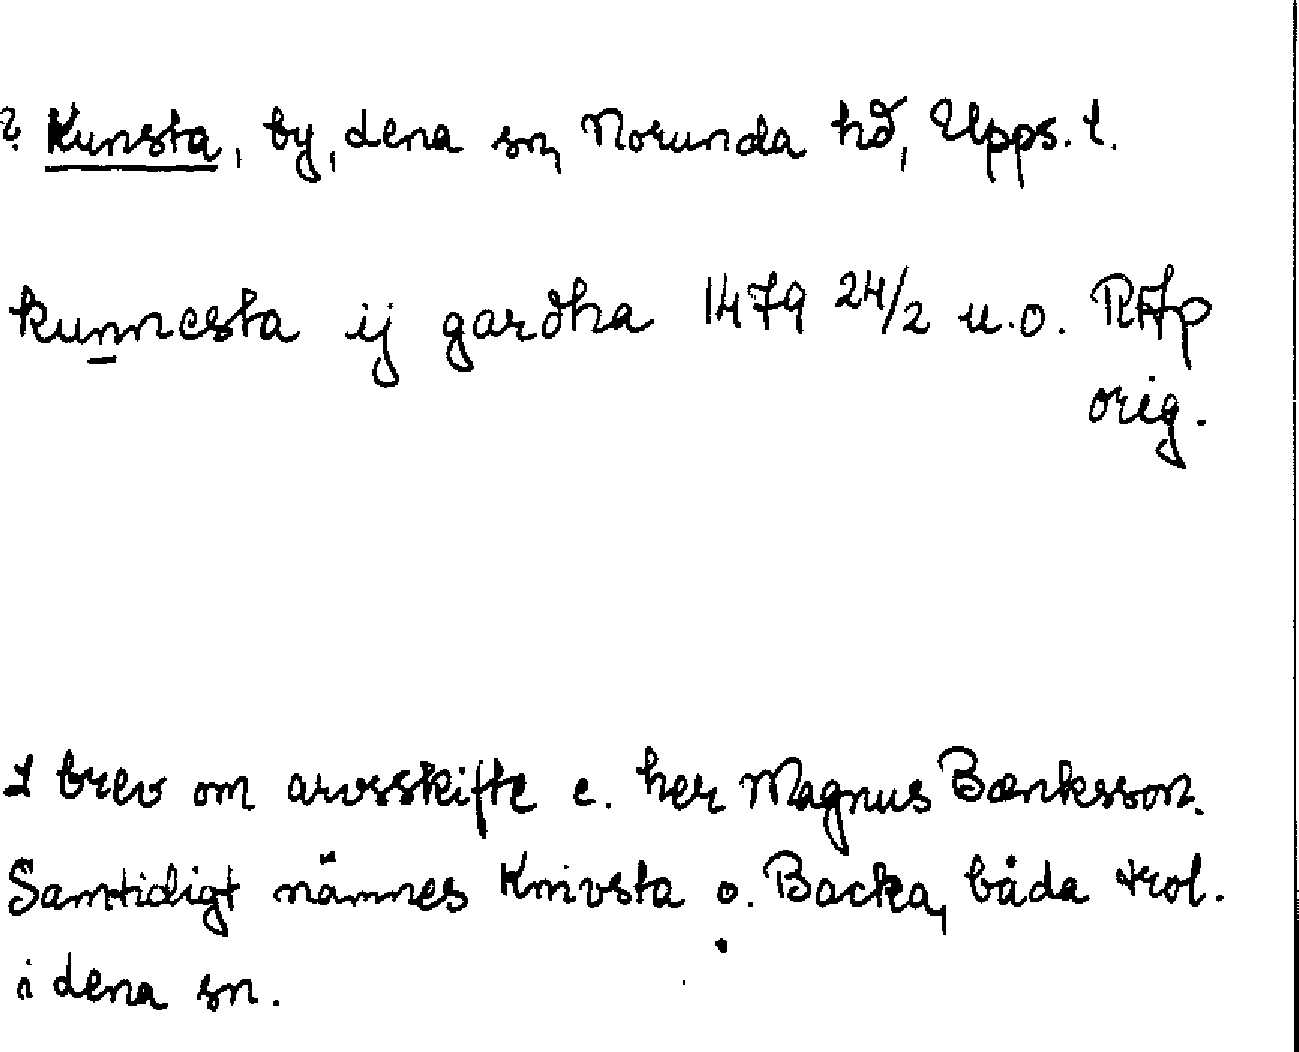 ? Kunsta, by, Lena sn, Norunda hd, Upps. l.
kunnesta ij gardha 1479 24/2 u.o. RAp
orig.
I brev om arvsskifte e. her Magnus Bænksson.
Samtidigt nämnes Knivsta o. Backa, båda trol.
i Lena sn.